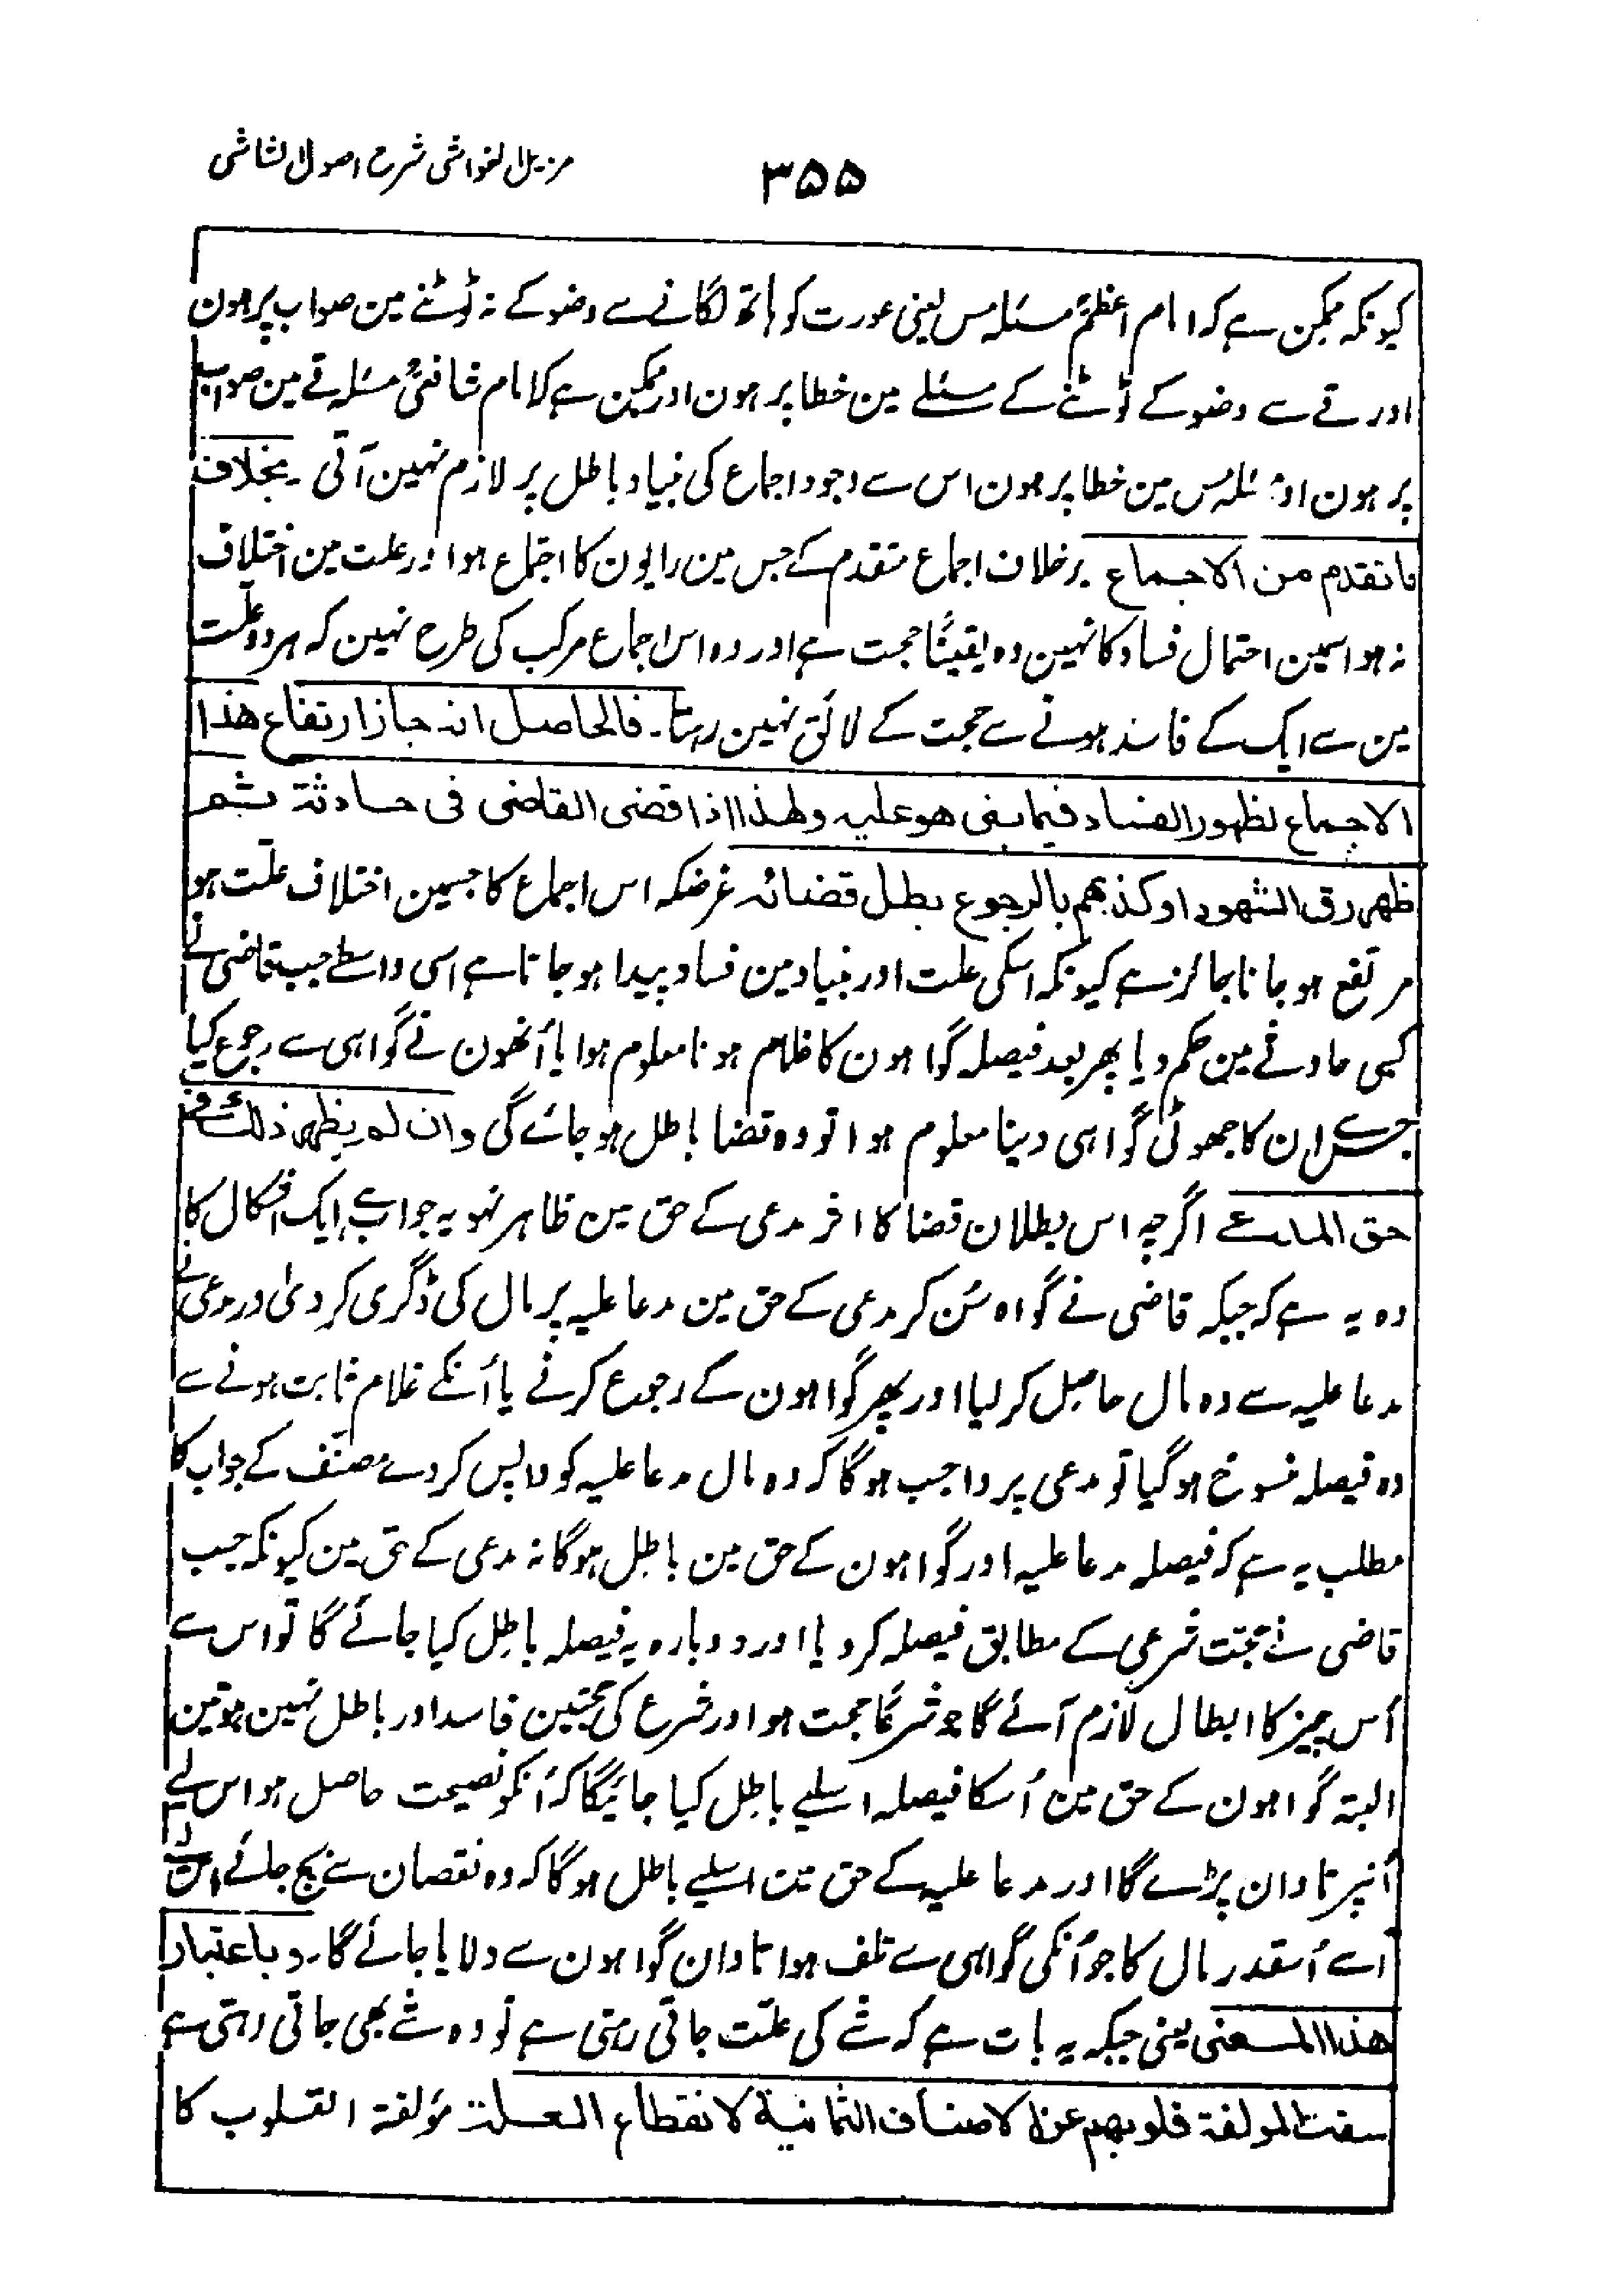 ۳۵۵
مزیل الغواشی شرح اصول الشاشی
کیونکہ ممکن ہے کہ امام اعظمؒ مسئلہ مس یعنی عورت کو ہاتھ لگانے سے وضو کے نہ ٹوٹنے مین صواب پر ہون
اور قے سے وضو کے ٹوٹنے کے مسئلے مین خطا پر ہون اور ممکن ہے کہ امام شافعیؒ مسئلہ قے مین صواب
پر ہون اور مسئلہ مس مین خطا پر ہون اس سے وجود اجماع کی بنیاد باطل پر لازم نہین آتی ۔ بخلاف
ما تقدم من الاجماع برخلاف اجماع متقدم کے جس مین رایون کا اجتماع ہوا اور علت مین اختلاف
نہ ہوا سمین احتمال فساد کا نہین وہ یقیناً حجت ہے اور وہ اس اجماع مرکب کی طرح نہین کہ ہر دو علت
مین سے ایک کے فاسد ہونے سے حجت کے لائق نہین رہتا۔ فالحاصل انہ جاز ارتفاع ھذا
الاجماع لظهور الفساد فیما بنی ھو علیہ ولھذا اذا قضی القاضی فی حادثۃ ثم
ظھر رق الشھود او کذبھم بالرجوع بطل قضائہ غرضکہ اس اجماع کا جسمین اختلاف علت ہو
مرتفع ہو جانا جائز ہے کیونکہ اسکی علت اور بنیاد مین فساد پیدا ہو جاتا ہے اسی واسطے جب قاضی نے
کسی حادثے مین حکم دیا پھر بعد فیصلہ گواہون کا غلام ہونا معلوم ہوا یا اُنھون نے گواہی سے رجوع کیا
جس سے ان کا جھوٹی گواہی دینا معلوم ہوا تو وہ قضا باطل ہو جائے گی وان لم یظھر ذلک فی
حق المدعی اگرچہ اس بطلان قضا کا اثر مدعی کے حق مین ظاہر نہو یہ جواب ہے ایک اشکال کا
وہ یہ ہے کہ جبکہ قاضی نے گواہ سُن کر مدعی کے حق مین مدعا علیہ پر مال کی ڈگری کر دی اور مدعی نے
مدعا علیہ سے وہ مال حاصل کر لیا اور پھر گواہون کے رجوع کرنے یا اُنکے غلام ثابت ہونے سے
وہ فیصلہ منسوخ ہو گیا تو مدعی پر واجب ہوگا کہ وہ مال مدعا علیہ کو واپس کر دے مصنّف کے جواب کا
مطلب یہ ہے کہ فیصلہ مدعا علیہ اور گواہون کے حق مین باطل ہوگا نہ مدعی کے حق مین کیونکہ جب
قاضی نے حجّت شرعی کے مطابق فیصلہ کر دیا اور دوبارہ یہ فیصلہ باطل کیا جائے گا تو اس سے
اُس چیز کا ابطال لازم آئے گا جو شرعاً حجت ہو اور شرع کی حجتین فاسد اور باطل نہین ہوتین
البتہ گواہون کے حق مین اُسکا فیصلہ اسلیے باطل کیا جائیگا کہ اُنکو نصیحت حاصل ہو اس لیے
اُنپر تاوان پڑے گا اور مدعا علیہ کے حق مین اسلیے باطل ہوگا کہ وہ نقصان سے بچ جائے اس لیے
اُسے اُسقدر مال کا جو اُنکی گواہی سے تلف ہوا تاوان گواہون سے دلایا جائے گا۔ وباعتبار
ھذا المعنی یعنی جبکہ یہ بات ہے کہ شے کی علّت جاتی رہتی ہے تو وہ شے بھی جاتی رہتی ہے
سقطت المولفۃ قلوبھم عن الاصناف الثمانیۃ لانقطاع العلۃ مؤلفۃ القلوب کا